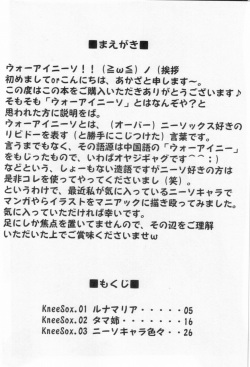 ■まえがき■
ウォーアイニーソ!!(≧ω≦)ノ(挨拶
初めましてorこんにちは、あかざと申します〜。
この度はこの本をご購入いただきありがとうございます♪
そもそも「ウォーアイニーソ」とはなんぞや?と
思われた方に説明をば。
ウォーアイニーソとは、(オーバー)ニーソックス好きの
リビドーを表す(と勝手にこじつけた)言葉です。
言うまでもなく、その語源は中国語の「ウォーアイニー」
をもじったもので、いわばオヤジギャグです(^^;)
などという、しょーもない造語ですがニーソ好きの方は
是非コレを使ってやってくださいまし(笑)。
というわけで、最近私が気に入っているニーソキャラで
マンガやらイラストをマニアックに描き殴ってみました。
気に入っていただければ幸いです。
足にしか焦点を置いてませんので、その辺をご理解
いただいた上でご賞味くださいませω
■もくじ■
KneeSox.01 ルナマリア・・・・・05
KneeSox.02 タマ姉・・・・・・・16
KneeSox.03 ニーソキャラ色々・・26